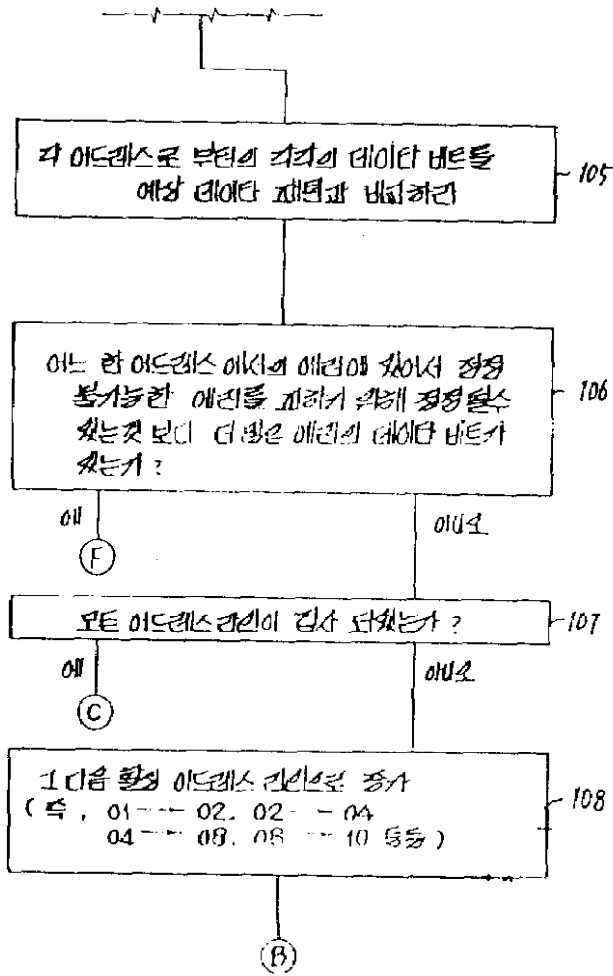 각 어드레스로 부터의 각각의 데이타 비트를
예상 데이타 패턴과 비교하라
105
어느 한 어드레스 에서의 에러에 있어서 정정
불가능한 에러를 피하기 위해 정정될수
있는것 보다 더 많은 에러의 데이타 비트가
있는가 ?
106
예
아니오
F
모든 어드레스라인이 검사 되었는가 ?
107
예
아니오
C
그 다음 활성 어드레스 라인으로 증가
( 즉, 01 → 02, 02 → 04
04 → 08, 08 → 10 등등 )
108
B